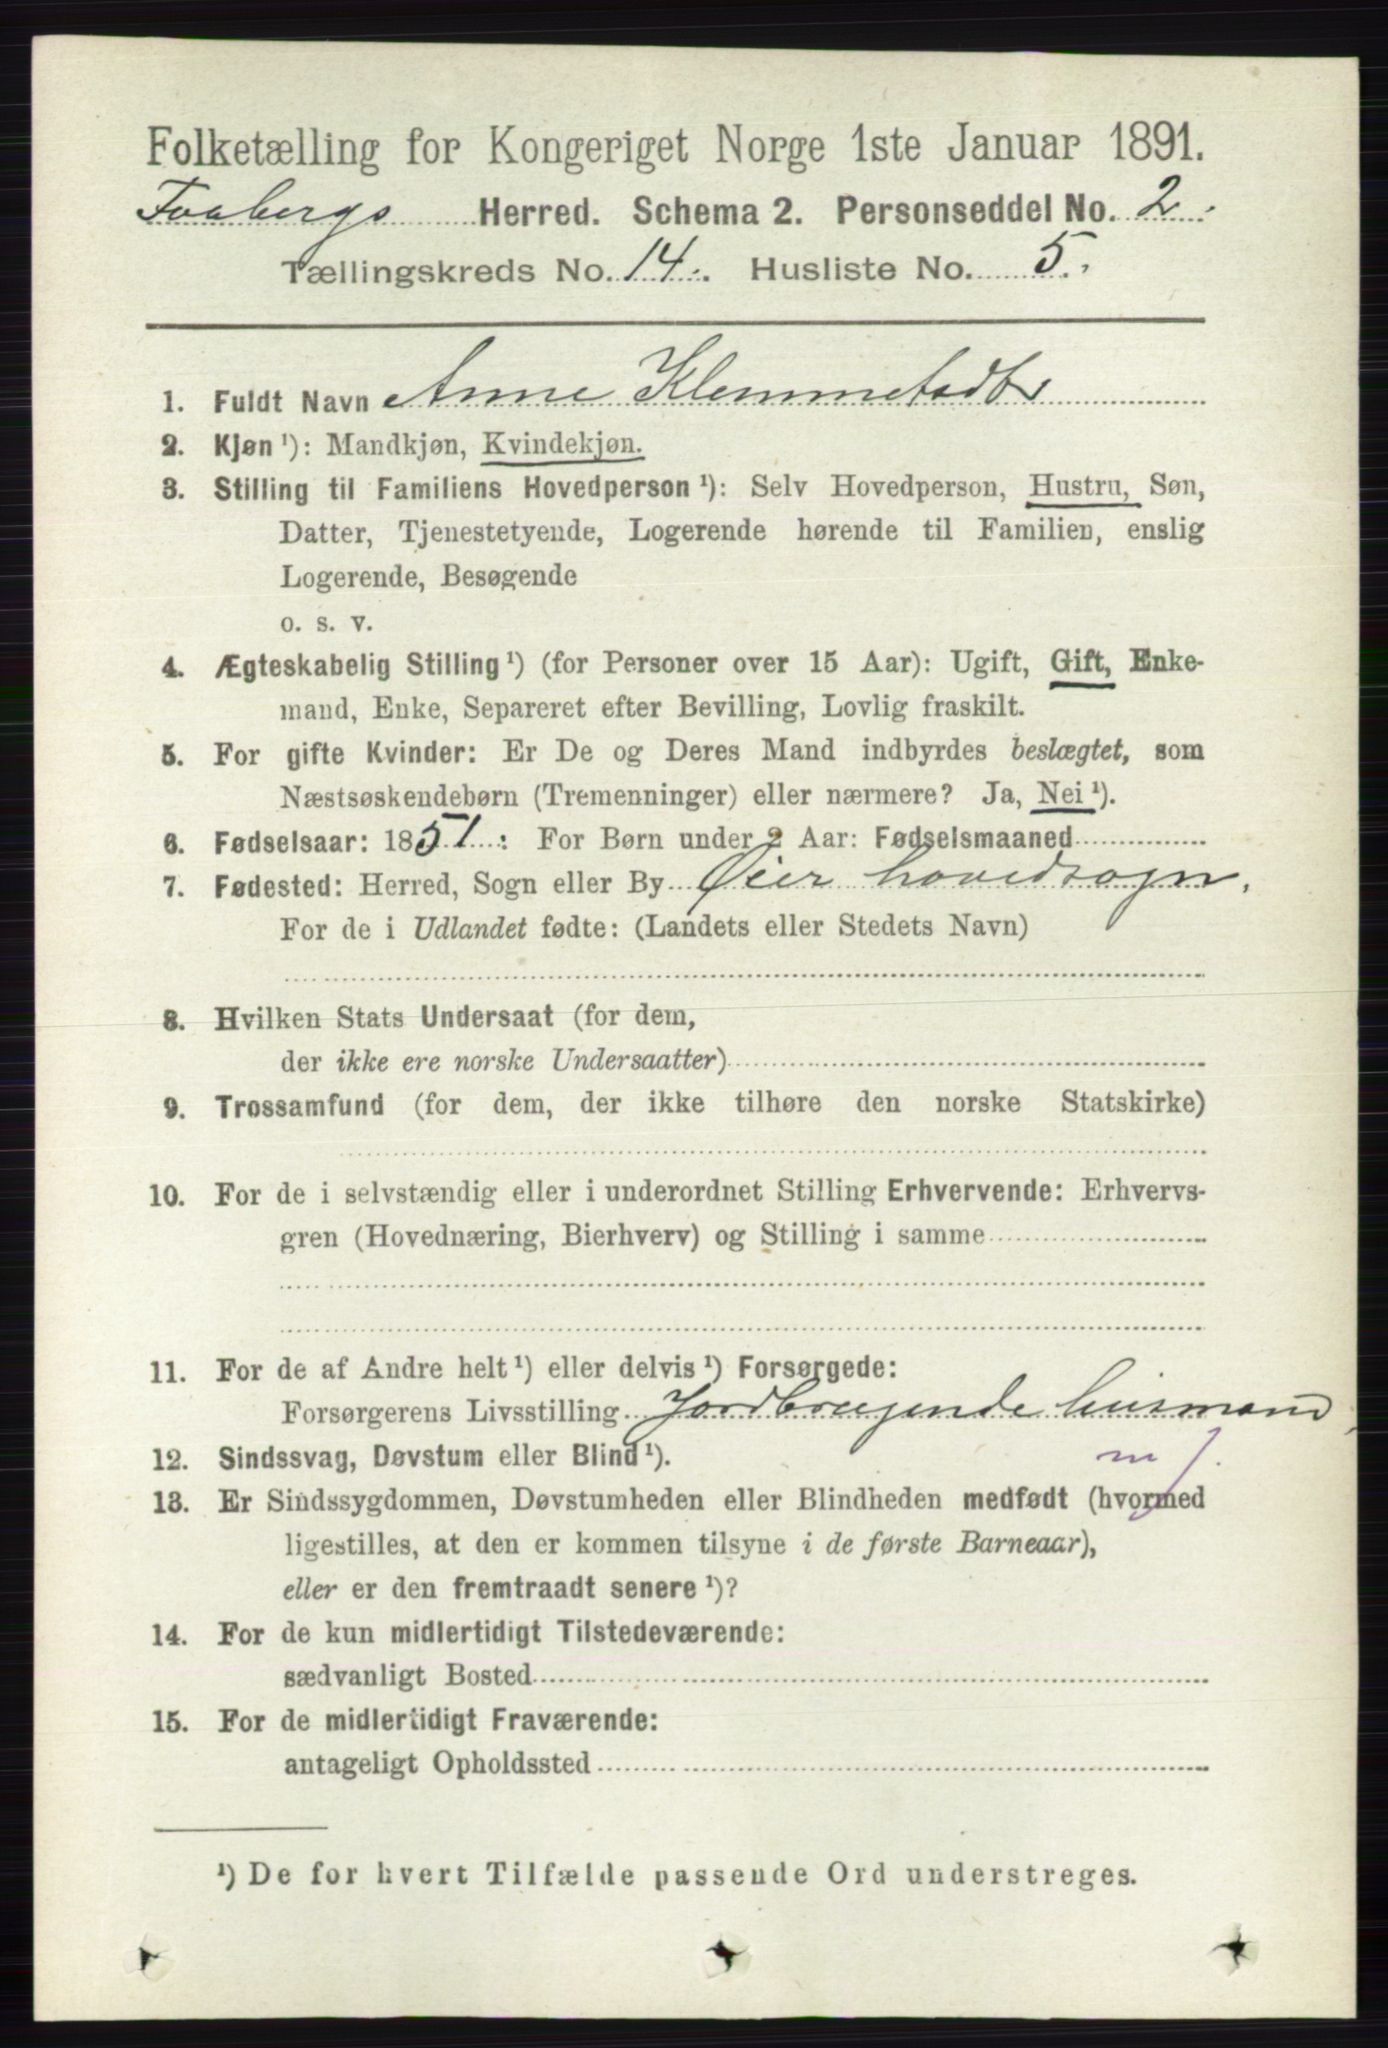 Folketælling for Kongeriget Norge 1ste Januar 1891.
Faabergs Herred. Schema 2. Personseddel No. 2.
Tællingskreds No. 14. Husliste No. 5.
1. Fuldt Navn Anne Klemmetsdtr
2. Kjøn ¹): Mandkjøn, Kvindekjøn.
3. Stilling til Familiens Hovedperson ¹): Selv Hovedperson, Hustru, Søn,
Datter, Tjenestetyende, Logerende hørende til Familien, enslig
Logerende, Besøgende
o. s. v.
4. Ægteskabelig Stilling ¹) (for Personer over 15 Aar): Ugift, Gift, Enke-
mand, Enke, Separeret efter Bevilling, Lovlig fraskilt.
5. For gifte Kvinder: Er De og Deres Mand indbyrdes beslægtet, som
Næstsøskendebørn (Tremenninger) eller nærmere? Ja, Nei ¹).
6. Fødselsaar: 1851: For Børn under 2 Aar: Fødselsmaaned
7. Fødested: Herred, Sogn eller By Øier hovedsogn.
For de i Udlandet fødte: (Landets eller Stedets Navn)
8. Hvilken Stats Undersaat (for dem,
der ikke ere norske Undersaatter)
9. Trossamfund (for dem, der ikke tilhøre den norske Statskirke)
10. For de i selvstændig eller i underordnet Stilling Erhvervende: Erhvervs-
gren (Hovednæring, Bierhverv) og Stilling i samme
11. For de af Andre helt ¹) eller delvis ¹) Forsørgede:
Forsørgerens Livsstilling Jordbrugende husmand
m J.
12. Sindssvag, Døvstum eller Blind ¹).
13. Er Sindssygdommen, Døvstumheden eller Blindheden medfødt (hvormed
ligestilles, at den er kommen tilsyne i de første Barneaar),
eller er den fremtraadt senere ¹)?
14. For de kun midlertidigt Tilstedeværende:
sædvanligt Bosted
15. For de midlertidigt Fraværende:
antageligt Opholdssted
¹) De for hvert Tilfælde passende Ord understreges.